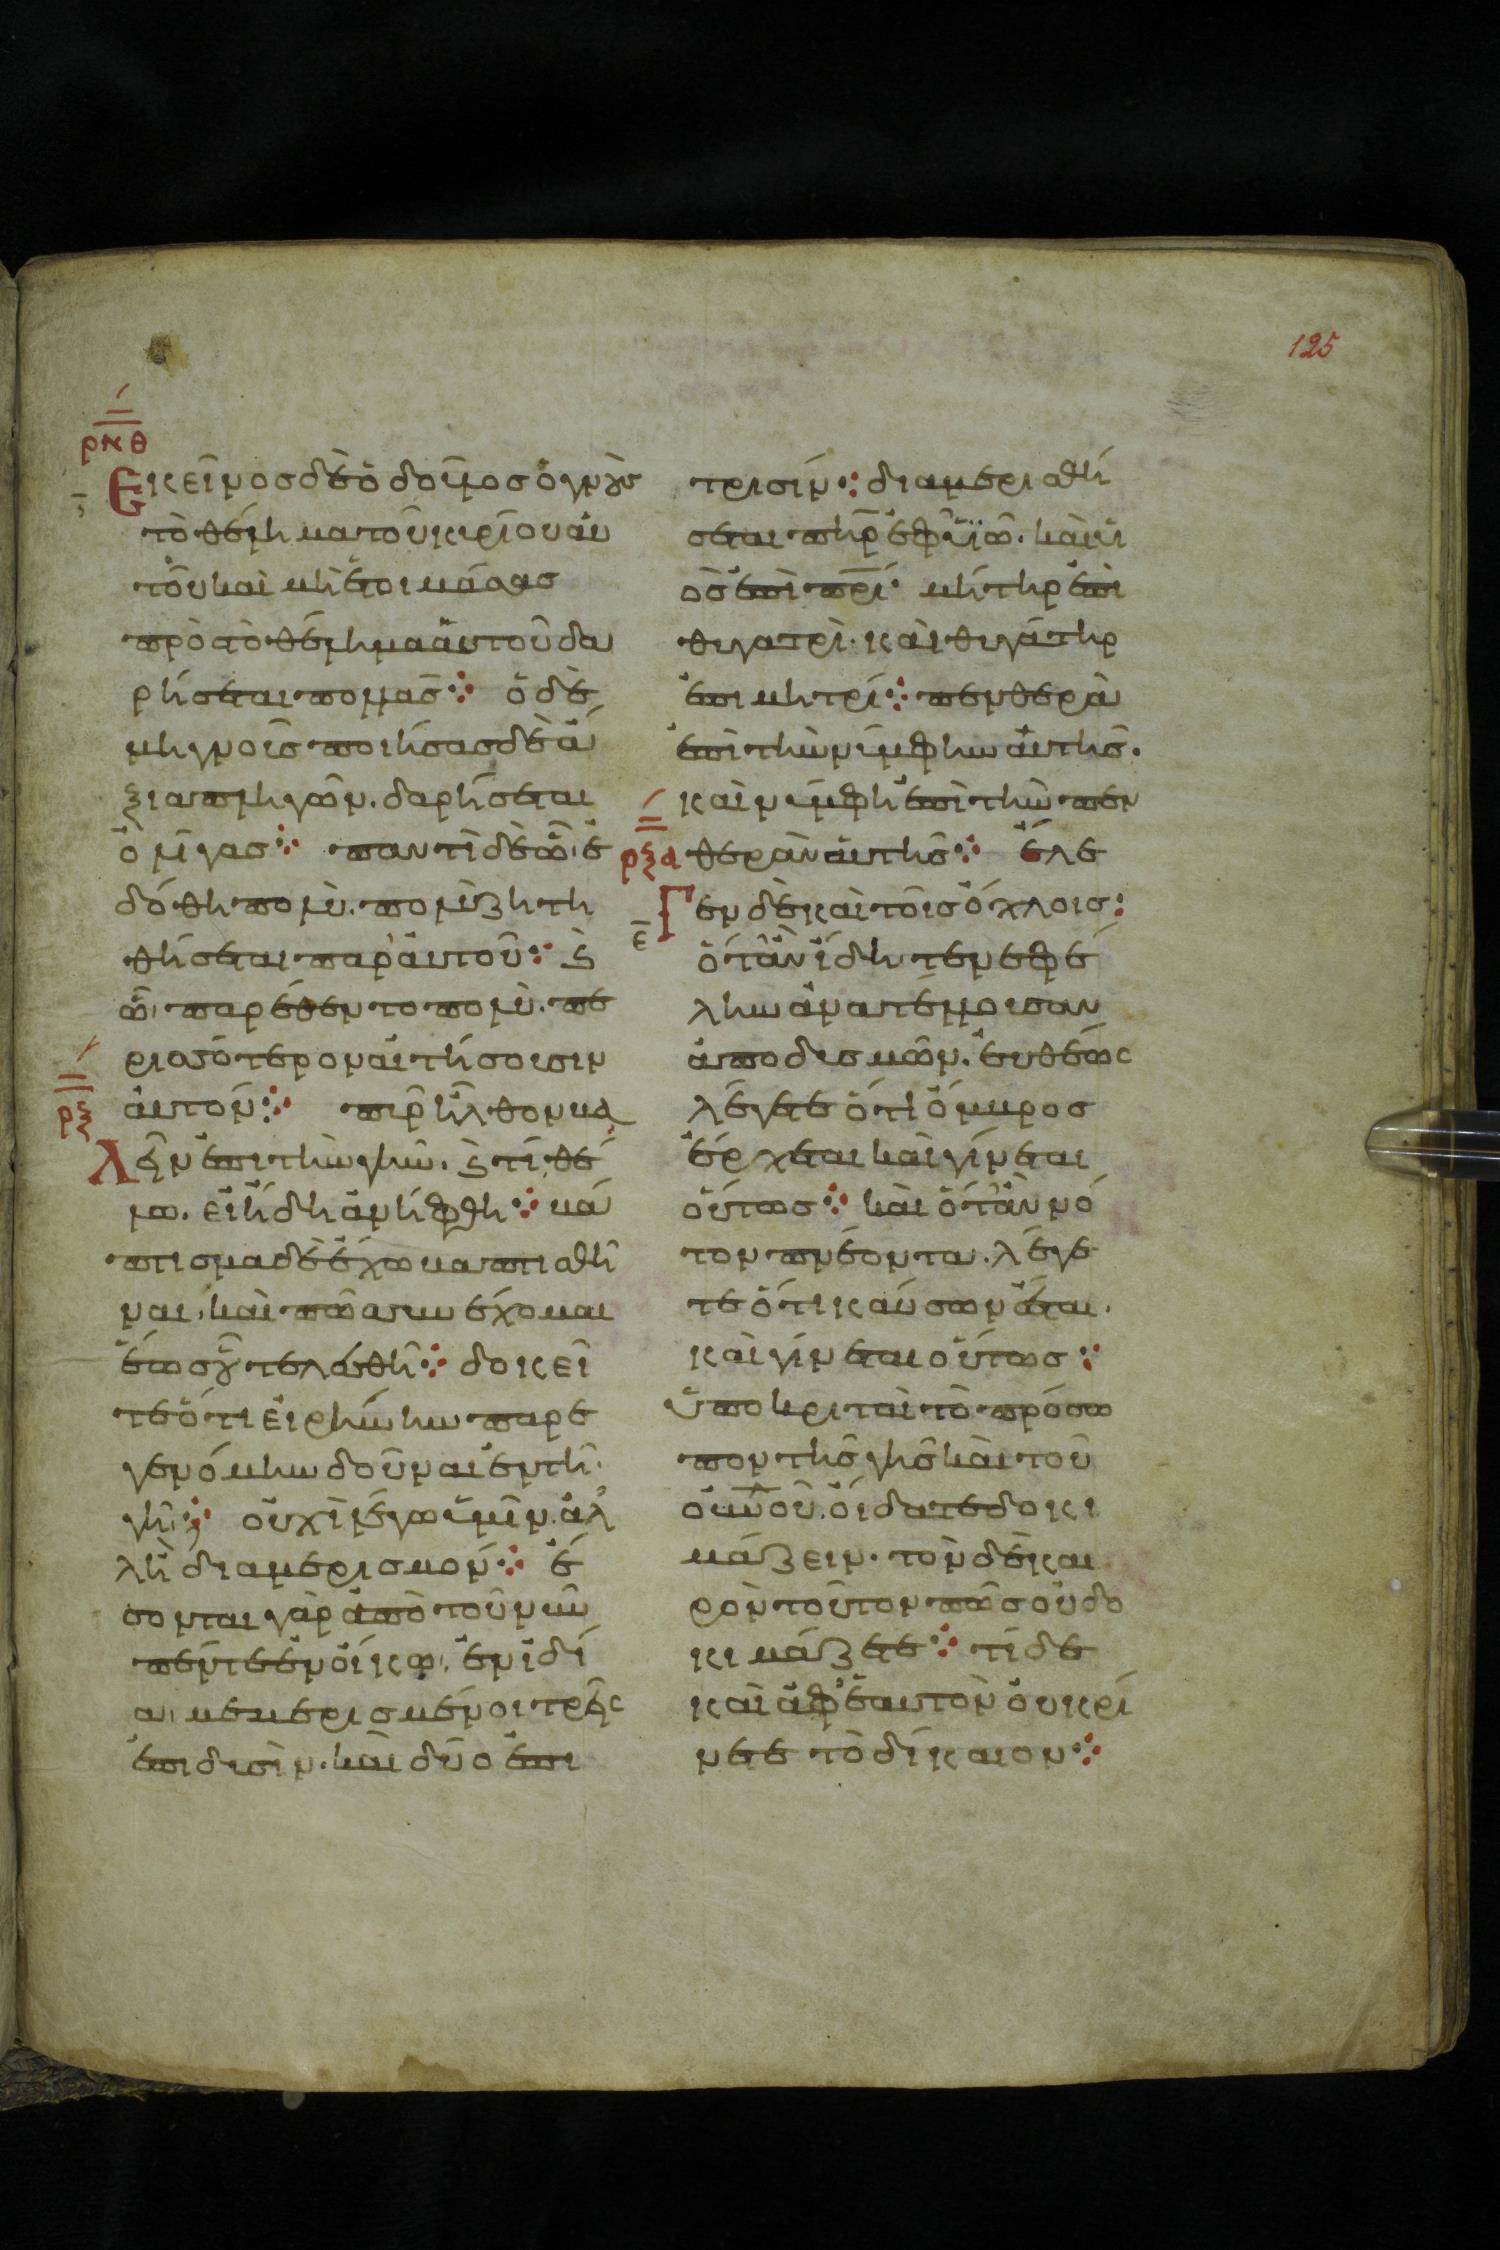 125
ρνθ
Ἐκεῖνοσ δὲ ὁ δοῦλοσ ὁ γνοὺσ
τὸ θέλημα τοῦ κυρίου αὐ
τοῦ καὶ μὴ ἑτοιμάσασ
πρὸσ τὸ θέλημα αὐτοῦ δα
ρήσεται πολλάσ· ὁ δὲ
μὴ γνοὺσ ποιήσασ δὲ ἄ
ξια πληγῶν. δαρήσεται
ὀλίγασ· παντὶ δὲ ᾧ ἐ
δόθη πολὺ. πολὺ ζητη
θήσεται παρ' αὐτοῦ· ϗ
ᾧ παρέθεντο πολὺ. πε
ρισσότερον αἰτήσουσιν
ρξ
αὐτόν· πῦρ ἦλθον βα
λεῖν ἐπὶ τὴν γῆν. ϗ τί θέ
λω. εἰ ἤδη ἀνήφθη· βά
πτισμα δὲ ἔχω βαπτισθῆ
ναι. καὶ πῶσ συνέχομαι
ἕωσ οὗ τελεσθῆ· δοκεῖ
τε ὅτι εἰρήνην παρε
γενόμην δοῦναι ἐν τῆ
γῆ; οὐχὶ λέγω ὑμῖν. ἀλ
λ' ἢ διαμερισμόν· ἔ
σονται γὰρ ἀπὸ τοῦ νῦν
πέντε ἐν οἴκω ἑνὶ δι
α μεμερισμένοι τρεῖσ
ἐπὶ δυσὶν. καὶ δύο ἐπὶ
τρισίν· διαμερισθή
σεται πηρ ἐφ' υἱῶ. καὶ υἱ
ὸσ ἐπὶ πρί· μήτηρ ἐπὶ
θυγατρὶ. καὶ θυγάτηρ
ἐπι μητρί· πενθερὰ
ἐπὶ τὴν νύμφην αὐτῆσ.
καὶ νύμφη ἐπὶ τὴν πεν
ρξα
θερὰν αὐτῆσ· ἔλε
ε
Γεν δὲ καὶ τοῖσ ὄχλοισ:
ὅταν ἴδητε νεφέ
λην ἀνατέλλουσαν
ἀπο δυσμῶν. εὐθέωσ
λέγετε ὅτι ὄμβροσ
ἔρχεται καὶ γίνεται
οὕτωσ· καὶ ὅταν νό
τον πνέοντα. λέγε
τε ὅτι καύσων ἔσται.
καὶ γίνεται οὕτωσ·
ὑποκριταὶ τὸ πρόσω
πον τῆσ γῆσ καὶ τοῦ
οὐνοῦ. οἴδατε δοκι
μάζειν. τὸν δὲ και
ρὸν τοῦτον πῶσ οὐ δο
κιμάζετε· τί δὲ
καὶ ἀφ' ἑαυτὸν οὐ κρί
νετε τὸ δίκαιον·